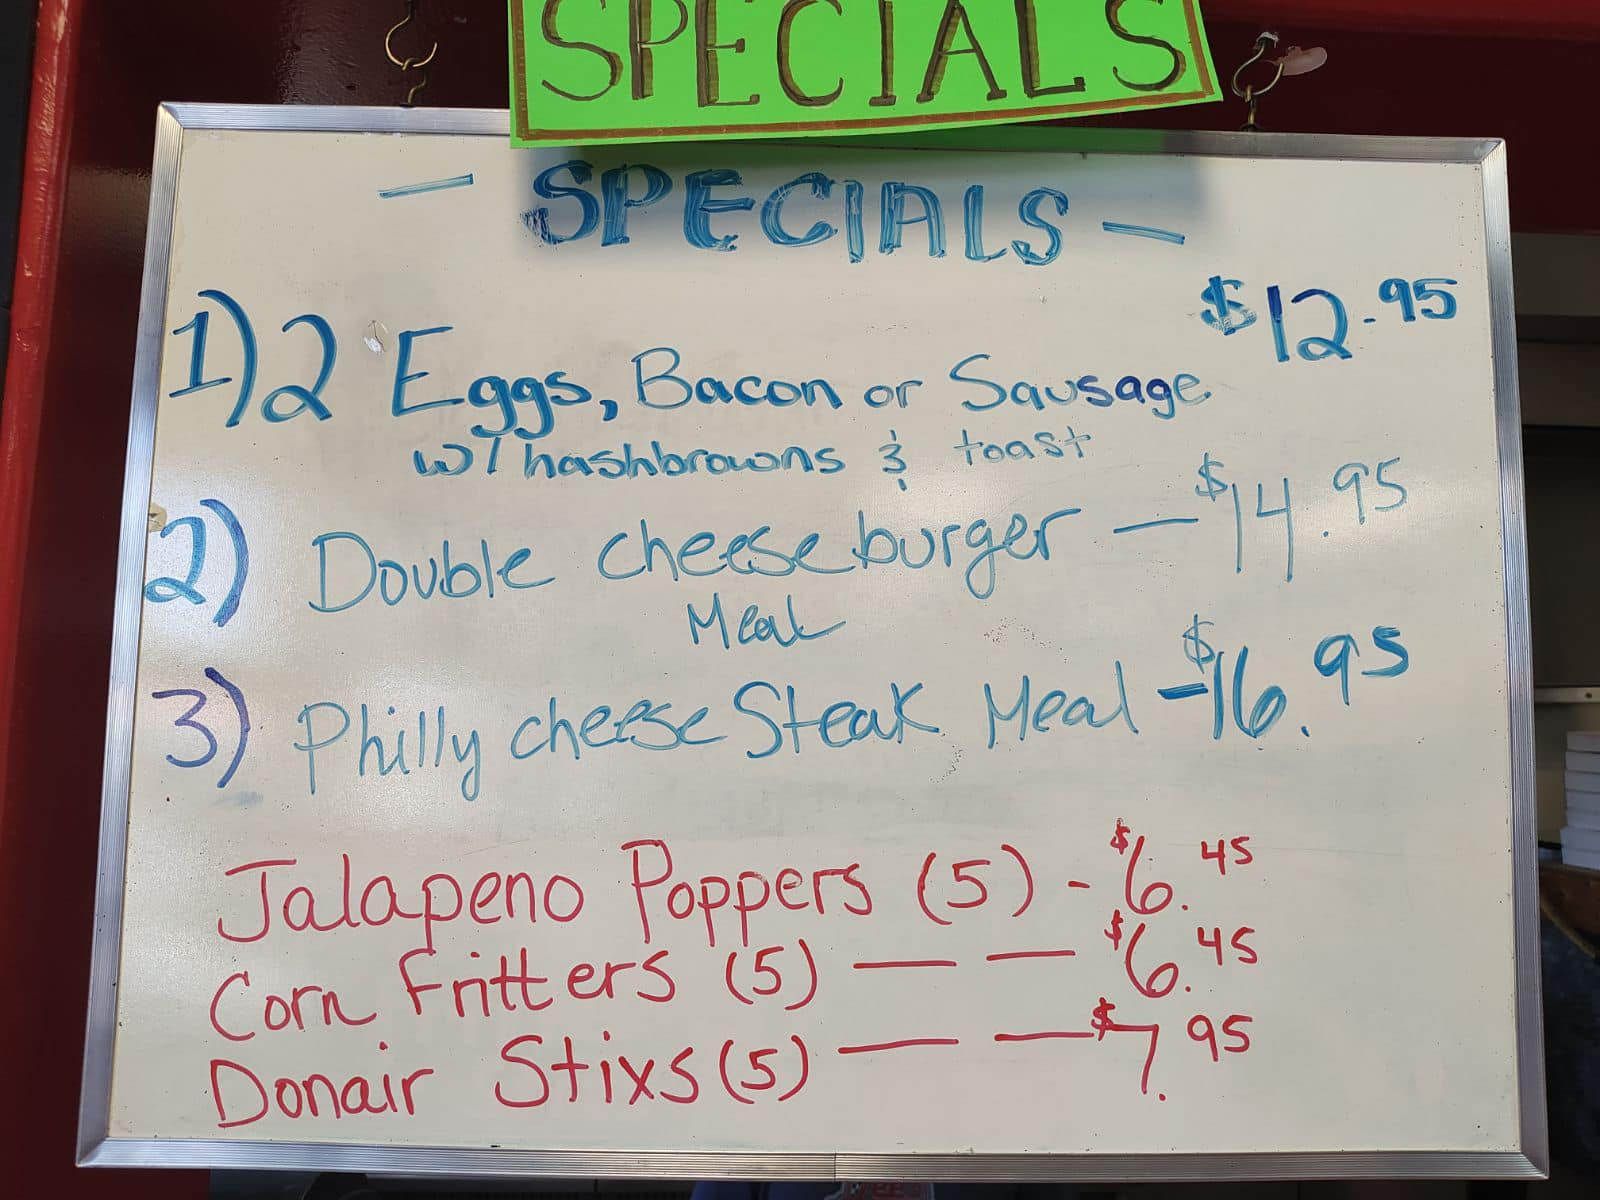 SPECIALS
— SPECIALS —
1) 2 Eggs, Bacon or Sausage $12.95
w/ hashbrowns & toast
2) Double cheeseburger — $14.95
Meal
3) Philly cheese Steak Meal - $16.95
Jalapeno Poppers (5) - $6.45
Corn Fritters (5) — — $6.45
Donair Stixs (5) — — $7.95